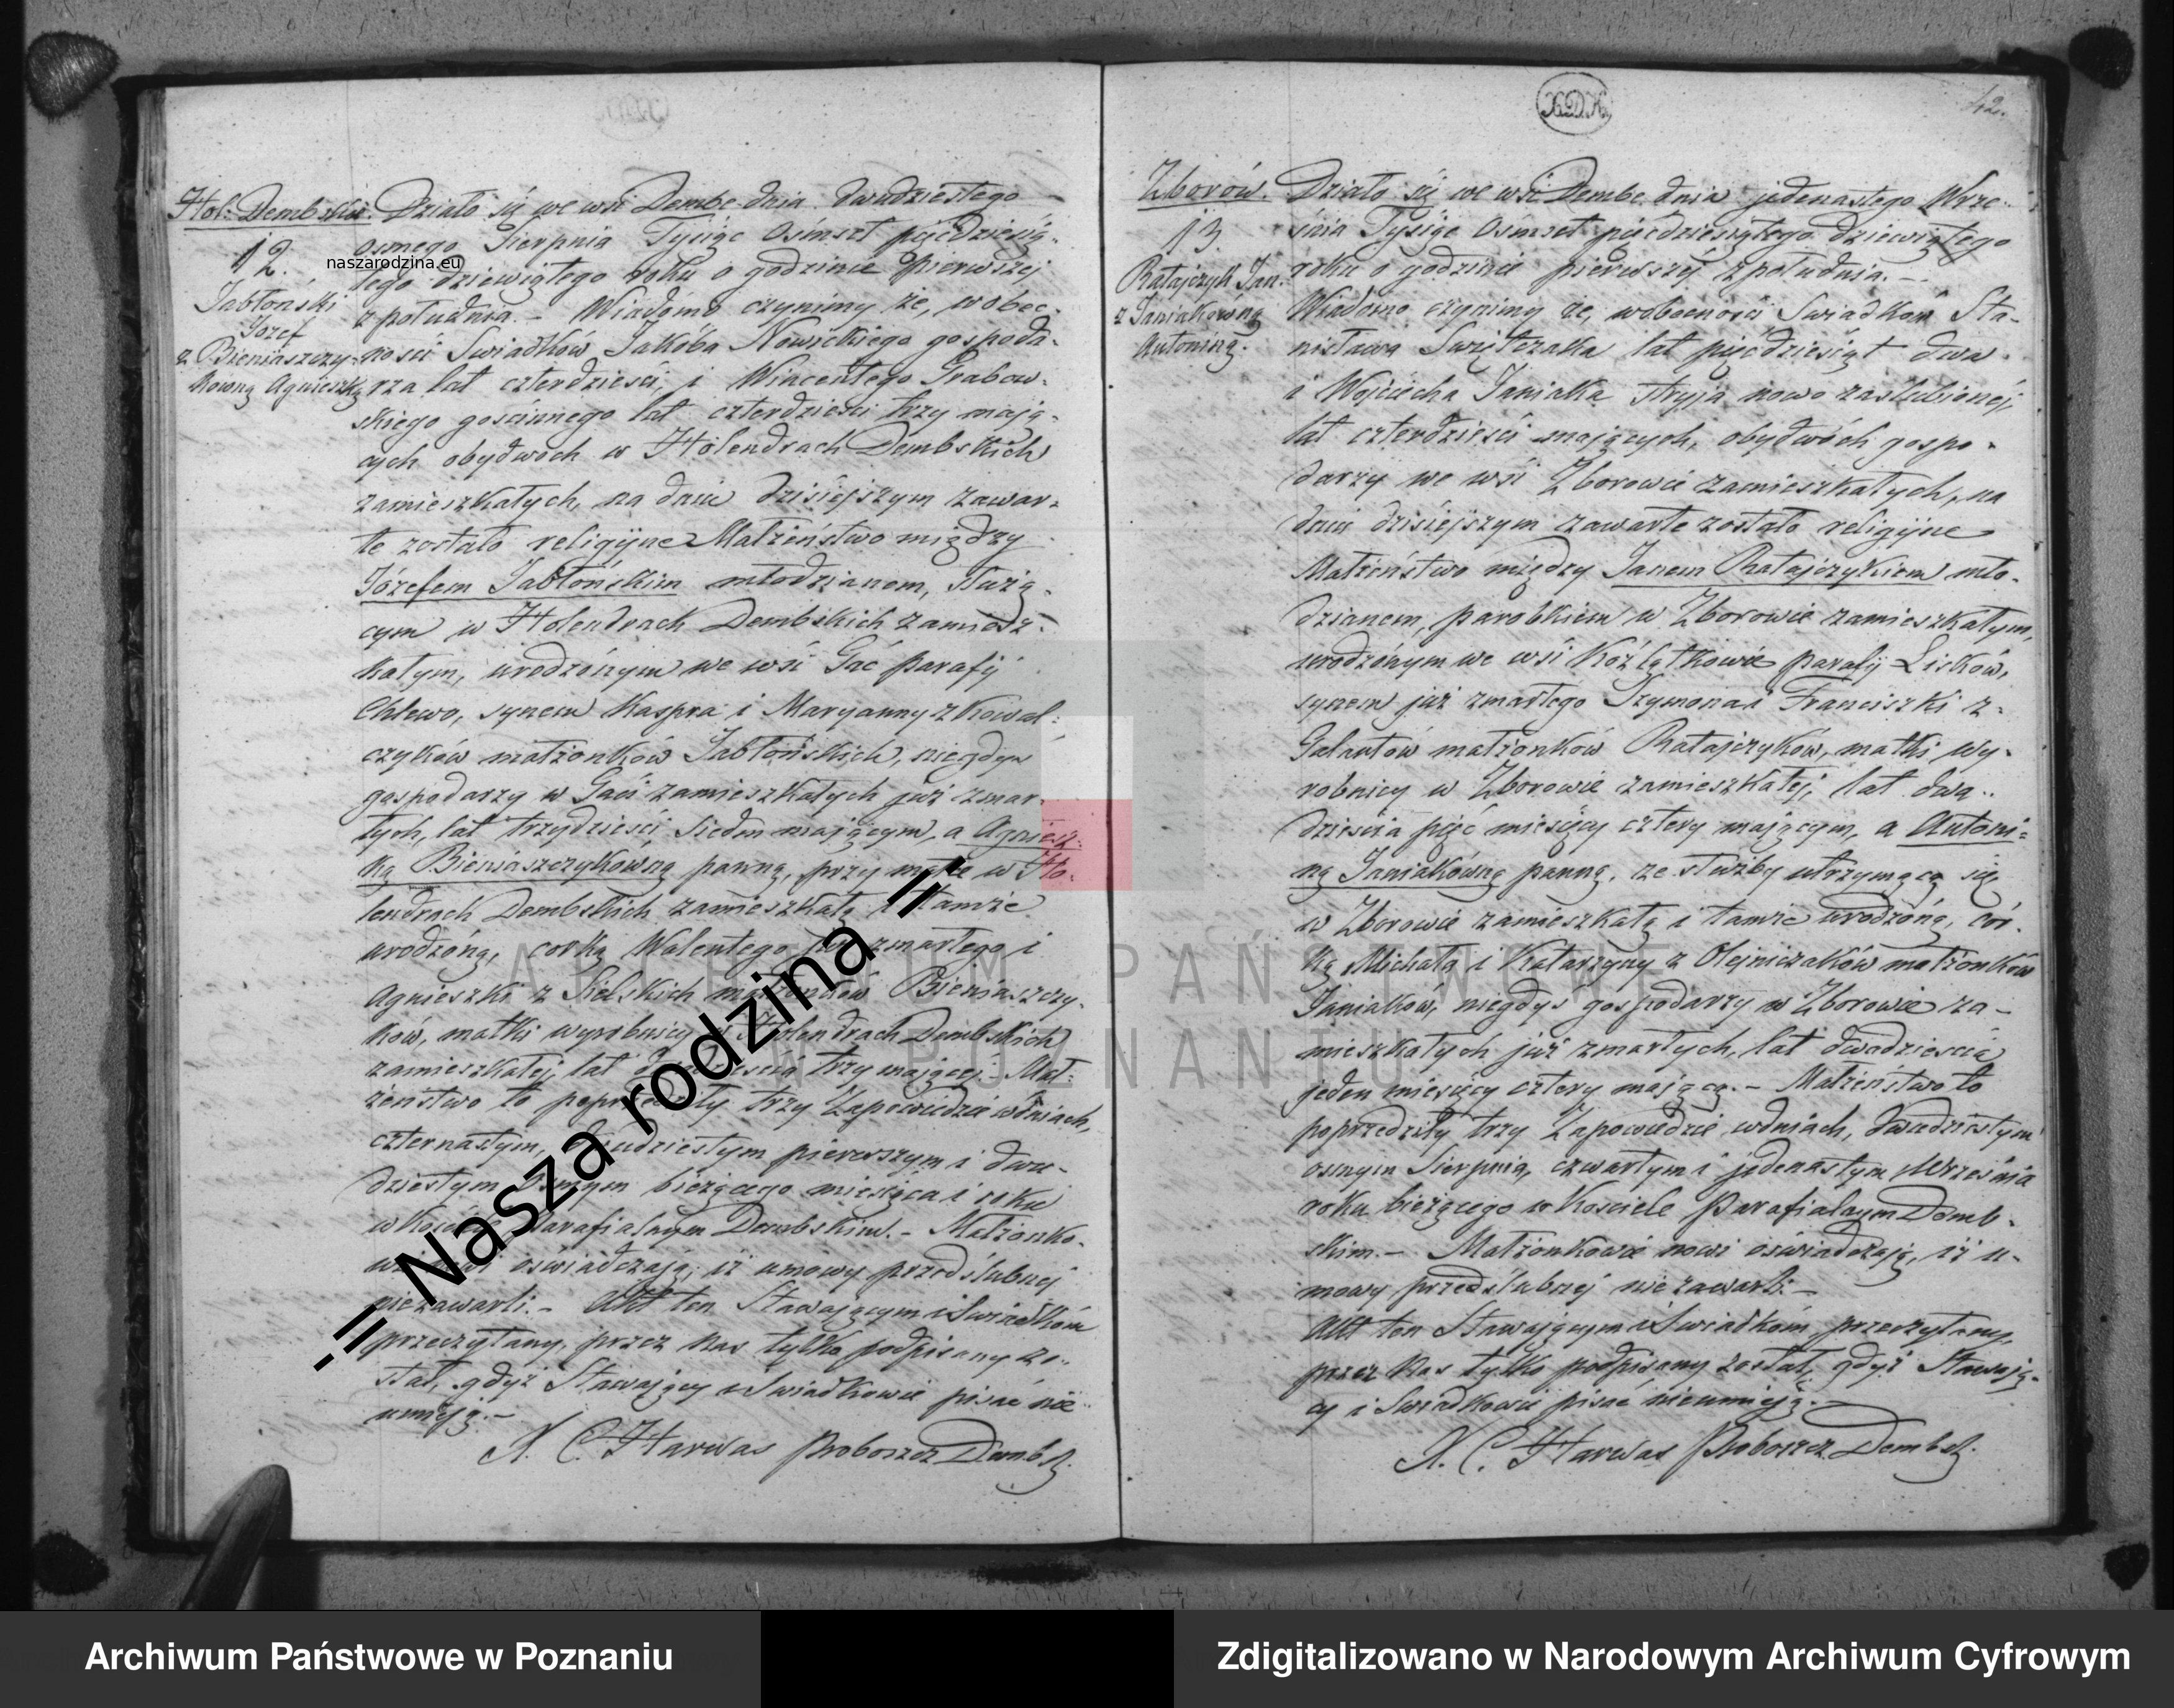 X.D.K.
42.
Hol: Dembskie.
12.
Jabłoński
Józef
z Bieniaszczy-
kówną Agnieszką
Działo się we wsi Dembe dnia dwudziestego
osmego Sierpnia Tysiąc Ośmset pięćdziesią-
tego dziewiątego roku o godzinie pierwszej
z południa. – Wiadomo czynimy że, w obec-
ności Swiadków Jakóba Nowickiego gospoda-
rza lat czterdzieści, i Wincentego Grabow-
skiego gościnnego lat czterdzieści trzy mają-
cych obydwóch w Holendrach Dembskich
zamieszkałych, na dniu dzisiejszym zawar-
te zostało religijne Małżeństwo między
Józefem Jabłońskim młodzianem, służą-
cym w Holendrach Dembskich zamiesz-
kałym, urodzónym we wsi Gać parafij
Chlewo, synem Kaspra i Maryanny z Kowal-
czyków małżonków Jabłońskich, niegdyś
gospodarzy w Gaci zamieszkałych już zmar-
łych, lat trzydzieści siedm mającym, a Agniesz-
ką Bieniaszczykówną panną, przy matce w Ho-
lendrach Dembskich zamieszkałą i tamże
urodzóną, corką Walentego już zmarłego i
Agnieszki z Sielskich małżonków Bieniaszczy-
ków, matki wyrobnicy w Holendrach Dembskich
zamieszkałej, lat dwadzieścia trzy mającej. – Mał-
żeństwo to poprzedziły trzy Zapowiedzie w dniach,
czternastym, dwudziestym pierwszym i dwu-
dziestym osmym bieżącego miesiąca i roku
w Kościele Parafialnym Dembskim. – Małżonko-
wie nowi oświadczają, iż umowy przedślubnej
niezawarli. – Akt ten Stawającym i Swiadkom
przeczytany, przez Nas tylko podpisany zo-
stał, gdyż Stawający i Swiadkowie pisać nie
umieją. –
X. C. Harwas Proboszcz Dembsk.
Zborów.
13.
Ratajczyk Jan.
z Janiakówną
Antoniną.
Działo się we wsi Dembe dnia jedenastego Wrze-
śnia Tysiąc Ośmset pięćdziesiątego dziewiątego
roku o godzinie pierwszej z południa. –
Wiadomo czynimy że, w obecności Swiadków Sta-
nisława Swiętczaka lat pięćdziesiąt dwa
i Wojciecha Janiaka stryja nowo zaślubionej,
lat czterdzieści mających, obydwóch gospo-
darzy we wsi Zborowie zamieszkałych, na
dniu dzisiejszym zawarte zostało religijne
Małżeństwo między Janem Ratajczykiem mło-
dzianem, parobkiem w Zborowie zamieszkałym,
urodzónym we wsi Koźlątkowie parafij Lisków,
synem już zmarłego Szymona i Franciszki z
Galantów małżonków Ratajczyków, matki wy-
robnicy w Zborowie zamieszkałej, lat dwa-
dzieścia pięć miesięcy cztery mającym, a Antoni-
ną Janiakówną panną, ze służby utrzymącą się
w Zborowie zamieszkałą i tamże urodzóną, cór-
ką Michała i Katarzyny z Olejniczaków małżonków
Janiaków, niegdyś gospodarzy w Zborowie za-
mieszkałych już zmarłych, lat dwadzieścia
jeden miesięcy cztery mającą. – Małżeństwo to
poprzedziły trzy Zapowiedzie w dniach, dwudziestym
osmym Sierpnia, czwartym i jedenastym Września
roku bieżącego w Kościele Parafialnym Demb-
skim. – Małżonkowie nowi oświadczają, iż u-
mowy przedślubnej niezawarli. –
Akt ten Stawającym i Swiadkom przeczytany,
przez Nas tylko podpisany został, gdyż Stawają-
cy i Swiadkowie pisać nieumieją. –
X. C. Harwas Proboszcz Dembsk.
naszarodzina.eu
-= Nasza rodzina =-
ARCHIWUM PAŃSTWOWE
W POZNANIU
Archiwum Państwowe w Poznaniu
Zdigitalizowano w Narodowym Archiwum Cyfrowym